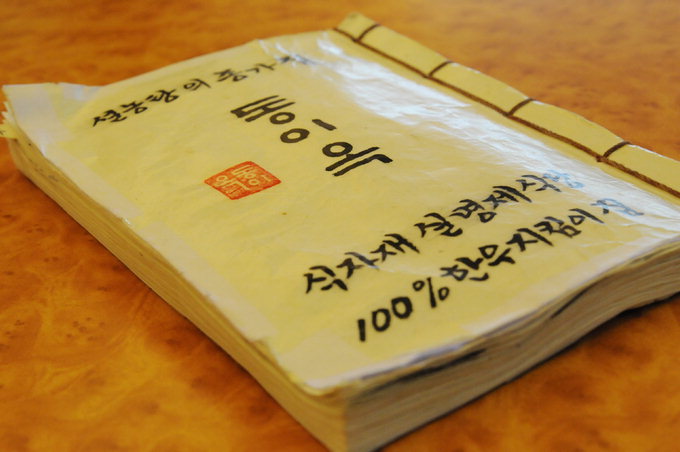 설농탕의 종가집
동이옥
식자재 실명제식당
100%한우지킴이집